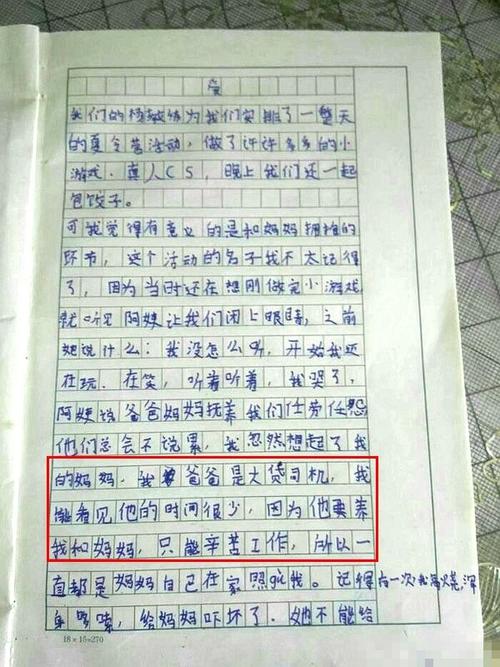 爱
我们的杨教练为我们安排了一整天
的夏令营活动，做了许许多多的小
游戏、真人CS，晚上我们还一起
包饺子。
可我觉得有意义的是和妈妈拥抱的
环节，这个活动的名子我不太记得
了，因为当时还在想刚做完小游戏
就听见阿姨让我们闭上眼睛，之前
她说什么：我没怎么听，开始我还
在玩。在笑，听着听着，我哭了，
阿姨说爸爸妈妈抚养我们任劳任怨
他们总会不说累，我忽然想起了我
的妈妈。我爸爸是大货司机，我
能看见他的时间很少，因为他要养
我和妈妈，只能辛苦工作，所以一
直都是妈妈自己在家照顾我。记得有一次，我发高烧，浑
身哆嗦，给妈妈吓坏了。她不能给
18×15=270